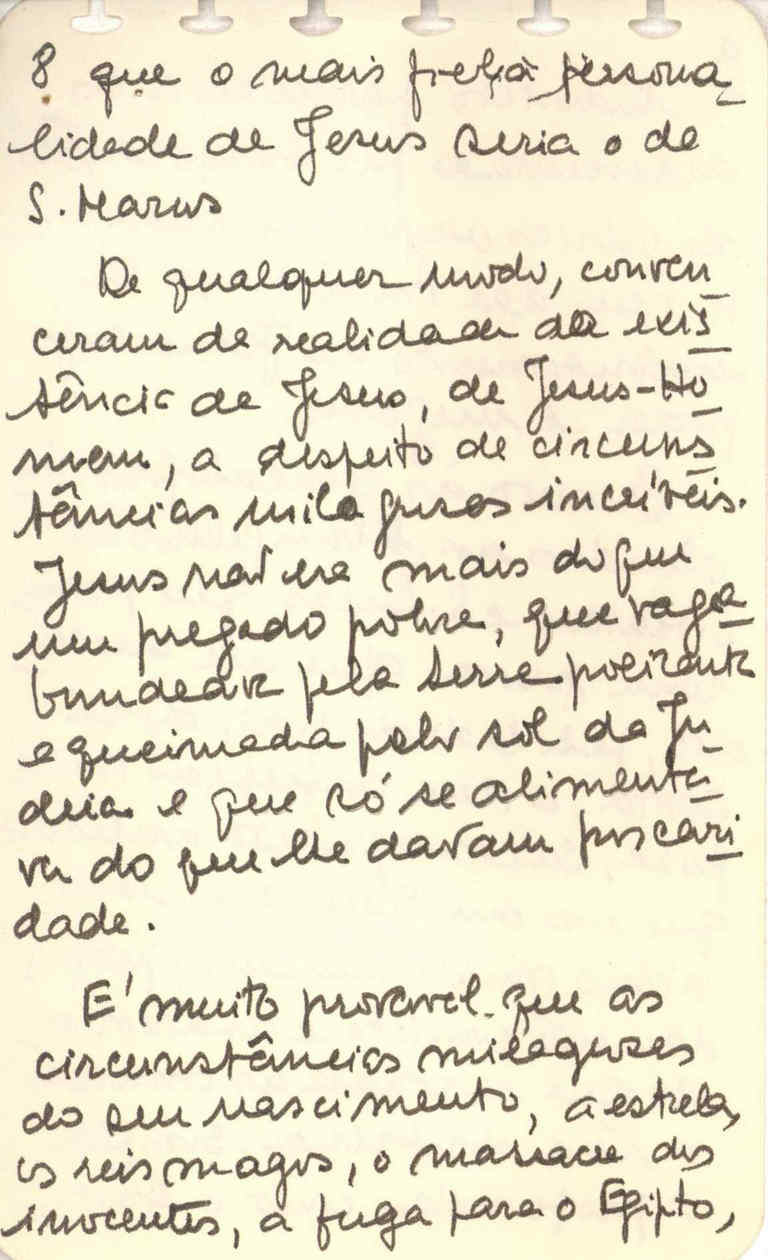 8 que o mais fiel à persona-
lidade de Jesus seria o de
S. Marcos
De qualquer modo, conven-
ceram da realidade da exis-
tência de Jesus, de Jesus-Ho-
mem, a despeito de circuns-
tâncias milagrosas incríveis.
Jesus não era mais do que
um pregado pobre, que vaga-
bundeava pela terra poeirenta
e queimada pelo sol da Ju-
deia e que só se alimenta-
va do que lhe davam por cari-
dade.
É muito provável que as
circunstâncias milagrosas
do seu nascimento, a estrela,
os reis magos, o massacre dos
inocentes, a fuga para o Egipto,